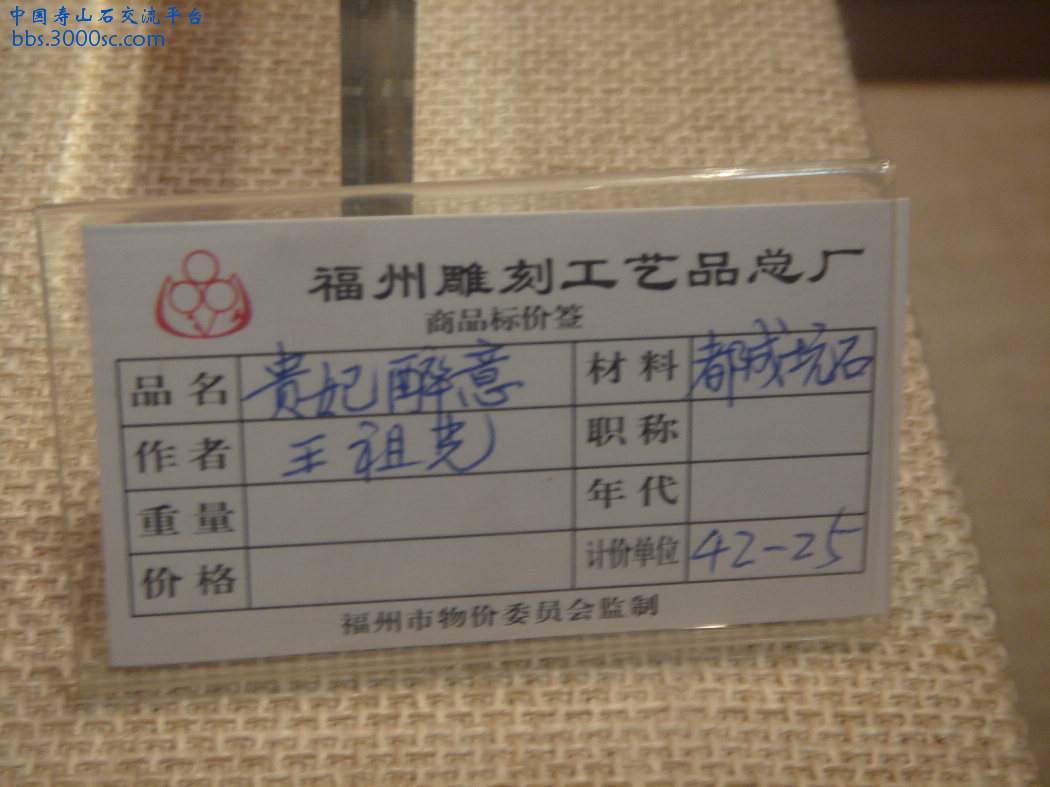 中国寿山石交流平台
bbs.3000sc.com
福州雕刻工艺品总厂
商品标价签
品名 贵妃醉意 材料 都成坑石
作者 王祖光 职称
重量 年代
价格 计价单位 42-25
福州市物价委员会监制